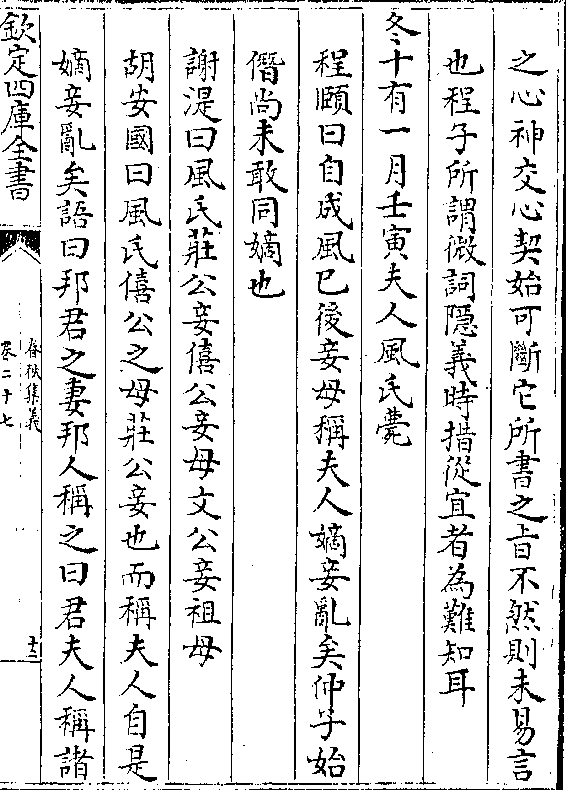 之心神交心契始可斷它所書之旨不然則未易言
也程子所謂微詞隱義時措從宜者為難知耳
冬十有一月壬寅夫人風氏薨
程頤曰自成風已後妾母稱夫人嫡妾亂矣仲子始
僭尚未敢同嫡也
謝湜曰風氏莊公妾僖公妾母文公妾祖母
胡安國曰風氏僖公之母莊公妾也而稱夫人自是
嫡妾亂矣語曰邦君之妻邦人稱之曰君夫人稱諸
欽定四庫全書
春秋集義
卷二十七
十二